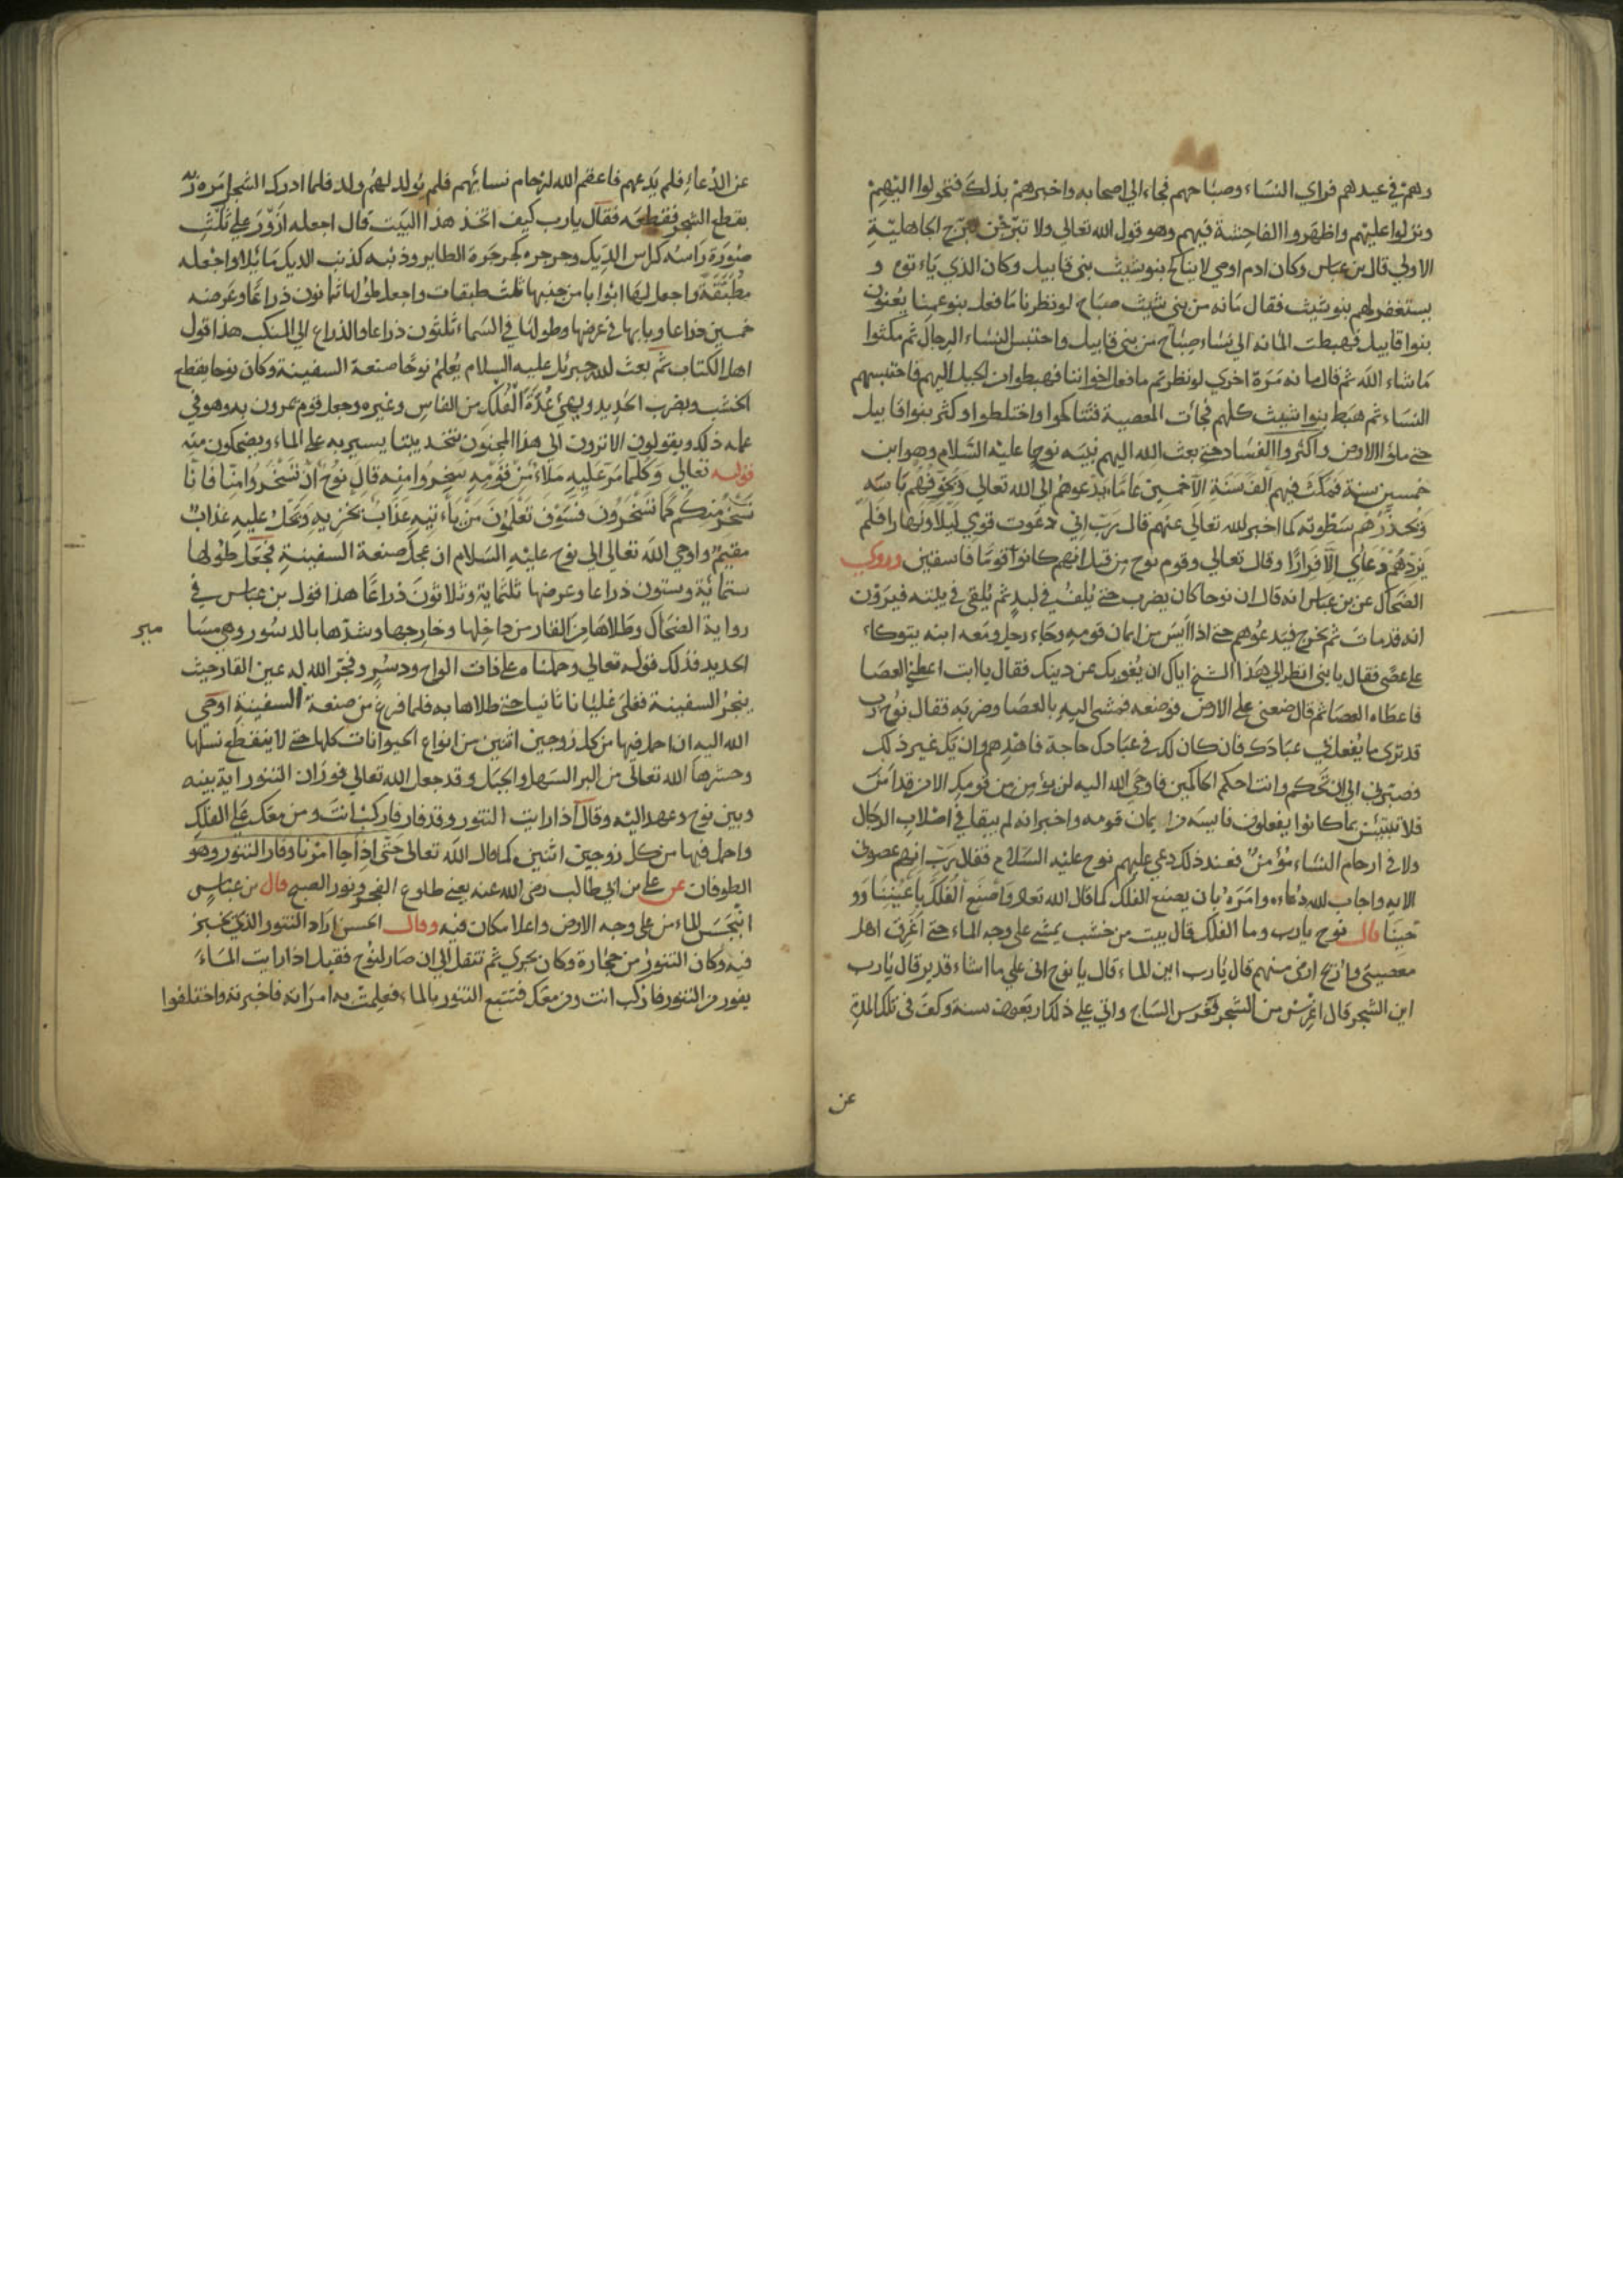 وهم في عيد لهم فراي النساء وصباحهم فجاء الي اصحابه واخبرهم بذلك فتحولوا اليهم
ونزلوا عليهم واظهروا الفاحشة فيهم وهو قول الله تعالي ولا تبرجن تبرج الجاهلية
الاولي قال بن عباس وكان ادم اوصي لا يناكح بنو شيث بني قابيل وكان الذي ياءتوه و
يستغفر لهم بنو شيث فقال مائه من بني شيث صباح لو نظرنا ما فعل بنو عمنا يعنون
بنوا قابيل فهبطت المائه الي نساء صباح من بني قابيل واحتبس النساء الرجال ثم مكثوا
ما شاء الله ثم قال مائه مرة اخري لو نظرتم ما فعل اخواننا فهبطوا من الجبل اليهم فاحتبسهم
النساء ثم هبط بنوا شيث كلهم فجأت المعصية فتناكحوا واختلطوا وكثر بنوا قابيل
حتي ملؤا الارض واكثروا الفساد حتي بعث الله اليهم نبيه نوحا عليه السلام وهو ابن
خمسين سنة فمكث فيهم الف سنة الا خمسين عاما يدعوهم الي الله تعالي ويخوفهم باسه
ويحذرهم سطوته كما اخبر الله تعالي عنهم قال رب اني دعوت قومي ليلا ونهارا فلم
يزدهم دعاي الا فرارا وقال تعالي وقوم نوح من قبل انهم كانوا قوما فاسقين وروي
الضحاك عن بن عباس انه قال ان نوحا كان يضرب حتي يلف في لبد ثم يلقي في بيته فيرون
انه قد مات ثم يخرج فيدعوهم حتي اذا ايس من ايمان قومه وجاء رجل ومعه ابنه يتوكاء
علي عصي فقال يا بني انظر الي هذا الشيخ اياك ان يغويك عن دينك فقال يا ابت اعطني العصا
فاعطاه العصا ثم قال ضعني علي الارض فوضعه فمشي اليه بالعصا وضربه فقال نوح رب
قد تري ما يفعل بي عبادك فان كان لك في عبادك حاجة فاهدهم وان يك غير ذلك
فصبرني الي ان تحكم وانت احكم الحاكمين فاوحي الله اليه لن يؤمن من قومك الا من قد امن
فلا تبتئس بما كانوا يفعلون فايسه من ايمان قومه واخبر انه لم يبقا في اصلاب الرجال
ولا في ارحام النساء مؤمن فعند ذلك دعي عليهم نوح عليه السلام فقال رب انهم عصوني
الايه واجاب الله دعاءه وامره بان يصنع الفلك كما قال الله تعالي واصنع الفلك باعيننا وو
حينا قال نوح يارب وما الفلك قال بيت من خشب يمشي علي وجه الماء حتي اغرق اهل
معصيتي واريح ارضي منهم قال يارب اين الماء قال يا نوح اني علي ما اشاء قدير قال يارب
اين الشجر قال اغرس من الشجر فغرس الساج واتي علي ذلك اربعون سنة وكف في تلك المدة
عن
عن الدعاء فلم يدعهم فاعقم الله ارحام نسائهم فلم يولد لهم ولد فلما ادرك الشجر امره ربه
بقطع الشجر فقطعه فقال يارب كيف اتخذ هذا البيت قال اجعله ازور علي ثلث
صورة راسه كراس الديك وجرجره كجرجرة الطاير وذنبه كذنب الديك مائلا واجعله
مطبقة واجعل لها ابوابا من جنبها ثلث طبقات واجعل طولها ثمانون ذراعا وعرضه
خمسين ذراعا وبابها في عرضها وطولها في السماء ثلثون ذراعا والذراع الي المنكب هذا قول
اهل الكتاب ثم بعث الله جبرئل عليه السلام يعلم نوحا صنعة السفينة وكان نوحا يقطع
الخشب ويضرب الحديد ويهيئ عدة الفلك من الفاس وغيره وجعل قوم يمرون به وهو في
عمله ذلك ويقولون الا ترون الي هذا المجنون يتخذ بيتا يسير به علي الماء ويضحكون منه
قوله تعالي وكلما مر عليه ملاء من قومه سخروا منه قال نوح ان تسخروا منا فانا
نسخر منكم كما تسخرون فسوف تعلمون من ياءتيه عذاب يخزيه ويحل عليه عذاب
مقيم واوحي الله تعالي الي نوح عليه السلام ان عجل صنعة السفينة فجعل طولها
ستمائة وستون ذراعا وعرضها ثلثماية وثلاثون ذراعا هذا قول بن عباس في
رواية الضحاك وطلاها من القار من داخلها وخارجها وشدها بالدسور وهي مسا
مير
الحديد فذلك قوله تعالي وحملناه علي ذات الواح ودسر وفجر الله له عين القار حيث
ينجر السفينة فغلي غليانا حتي طلاها به فلما فرغ من صنعة السفينة اوحي
الله اليه ان احمل فيها من كل زوجين اثنين من انواع الحيوانات كلها حتي لا ينقطع نسلها
وحشرها الله تعالي من البر السهل والجبل وقد جعل الله تعالي فوران التنور اية بينه
وبين نوح وعهد اليه وقال اذا رايت التنور وقد فار فاركب انت ومن معك علي الفلك
واحمل فيها من كل زوجين اثنين كما قال الله تعالي حتي اذا جا امرنا وفار التنور وهو
الطوفان عن علي بن ابي طالب رضي الله عنه يعني طلوع الفجر ونور الصبح قال بن عباس
انبجس الماء من علي وجه الارض واعلا مكان فيه وقال الحسن اراد التنور الذي يخبز
فيه وكان التنور من حجارة وكان يجري ثم تنقل الي ان صار لنوح فقيل اذا رايت الماء
يفور من التنور فاركب انت ومن معك فتتبع التنور بالماء فعلمت به امراته فاخبرته واختلفوا